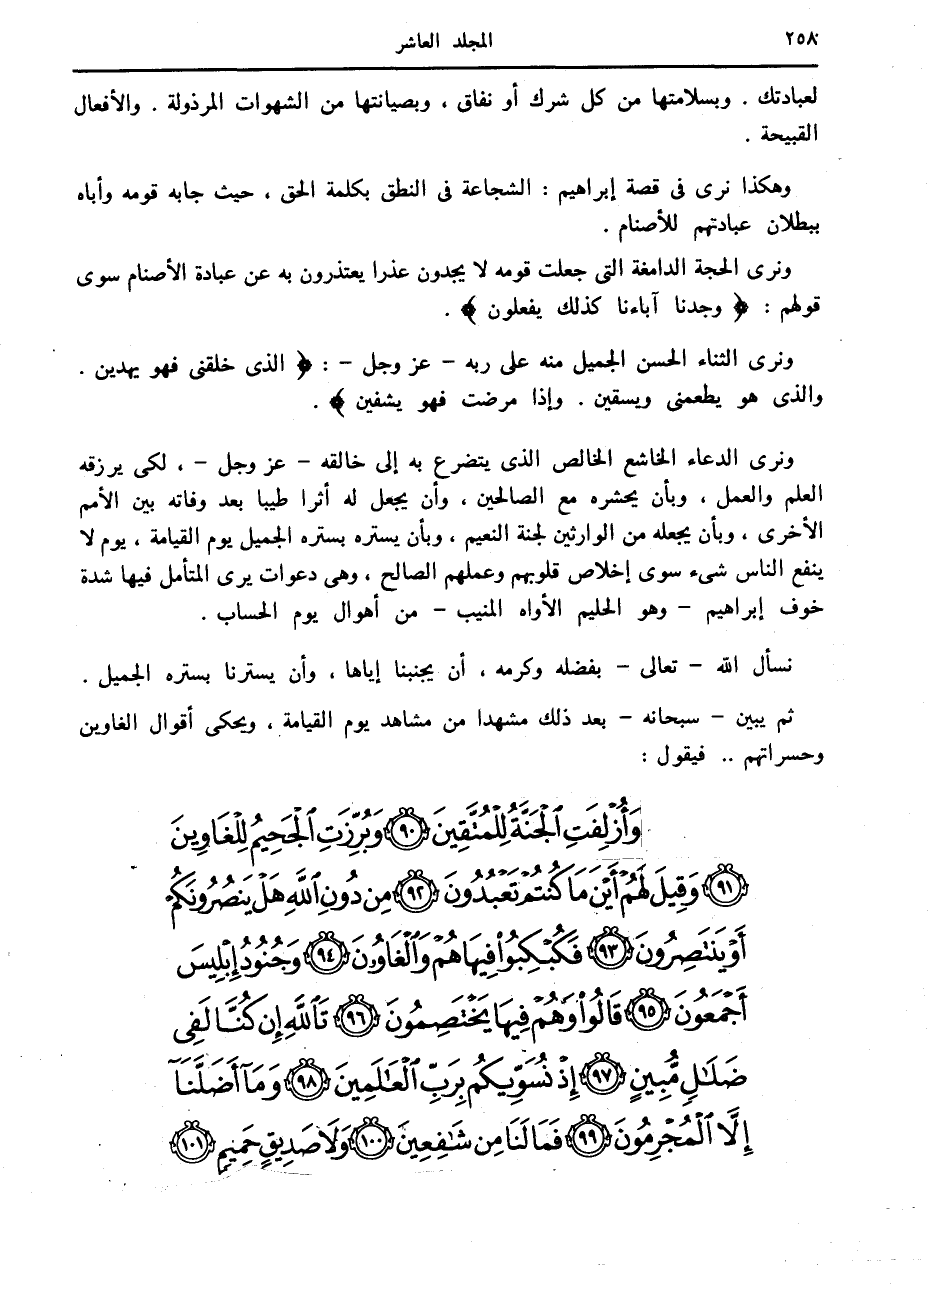 ٢٥٨ المجلد العاشر
لعبادتك . وبسلامتها من كل شرك أو نفاق ، وبصيانتها من الشهوات المرذولة . والأفعال
القبيحة .
وهكذا نرى فى قصة إبراهيم : الشجاعة فى النطق بكلمة الحق ، حيث جابه قومه وأباه
ببطلان عبادتهم للأصنام .
ونرى الحجة الدامغة التى جعلت قومه لا يجدون عذرا يعتذرون به عن عبادة الأصنام سوى
قولهم : ﴿ وجدنا آباءنا كذلك يفعلون ﴾ .
ونرى الثناء الحسن الجميل منه على ربه - عز وجل - : ﴿ الذى خلقنى فهو يهدين .
والذى هو يطعمنى ويسقين . وإذا مرضت فهو يشفين ﴾ .
ونرى الدعاء الخاشع الخالص الذى يتضرع به إلى خالقه - عز وجل - ، لكى يرزقه
العلم والعمل ، وبأن يحشره مع الصالحين ، وأن يجعل له أثرا طيبا بعد وفاته بين الأمم
الأخرى ، وبأن يجعله من الوارثين لجنة النعيم ، وبأن يستره بستره الجميل يوم القيامة ، يوم لا
ينفع الناس شىء سوى إخلاص قلوبهم وعملهم الصالح ، وهى دعوات يرى المتأمل فيها شدة
خوف إبراهيم - وهو الحليم الأواه المنيب - من أهوال يوم الحساب .
نسأل الله - تعالى - بفضله وكرمه ، أن يجنبنا إياها ، وأن يسترنا بستره الجميل .
ثم يبين - سبحانه - بعد ذلك مشهدا من مشاهد يوم القيامة ، ويحكى أقوال الغاوين
وحسراتهم .. فيقول :
وَأُزْلِفَتِ ٱلْجَنَّةُ لِلْمُتَّقِينَ ٩٠ وَبُرِّزَتِ ٱلْجَحِيمُ لِلْغَاوِينَ
٩١ وَقِيلَ لَهُمْ أَيْنَ مَا كُنتُمْ تَعْبُدُونَ ٩٢ مِن دُونِ ٱللَّهِ هَلْ يَنصُرُونَكُمْ
أَوْ يَنتَصِرُونَ ٩٣ فَكُبْكِبُواْ فِيهَا هُمْ وَٱلْغَاوُۥنَ ٩٤ وَجُنُودُ إِبْلِيسَ
أَجْمَعُونَ ٩٥ قَالُواْ وَهُمْ فِيهَا يَخْتَصِمُونَ ٩٦ تَٱللَّهِ إِن كُنَّا لَفِى
ضَلَٰلٍ مُّبِينٍ ٩٧ إِذْ نُسَوِّيكُم بِرَبِّ ٱلْعَٰلَمِينَ ٩٨ وَمَآ أَضَلَّنَآ
إِلَّا ٱلْمُجْرِمُونَ ٩٩ فَمَا لَنَا مِن شَٰفِعِينَ ١٠٠ وَلَا صَدِيقٍ حَمِيمٍ ١٠١